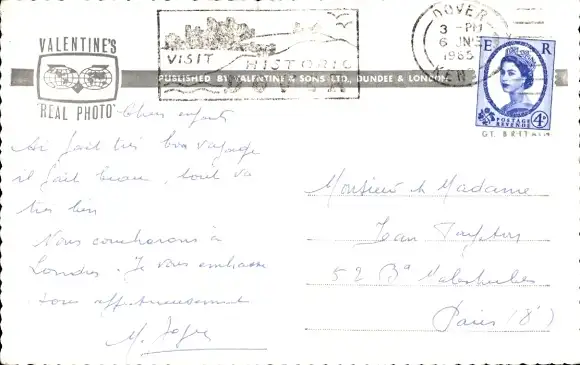 VALENTINE'S
"REAL PHOTO"
VISIT HISTORIC
DOVER
DOVER
3 - PM
6 JNE
1965
KENT
PUBLISHED BY VALENTINE & SONS LTD., DUNDEE & LONDON
E R
POSTAGE
REVENUE
4D
GT. BRITAIN
Chers enfants
Ai fait très bon voyage
il fait beau, tout va
très bien
Nous coucherons à
Londres. Je vous embrasse
tous affectueusement
M.
Monsieur & Madame
Jean
52 Bd Malesherbes
Paris (8)